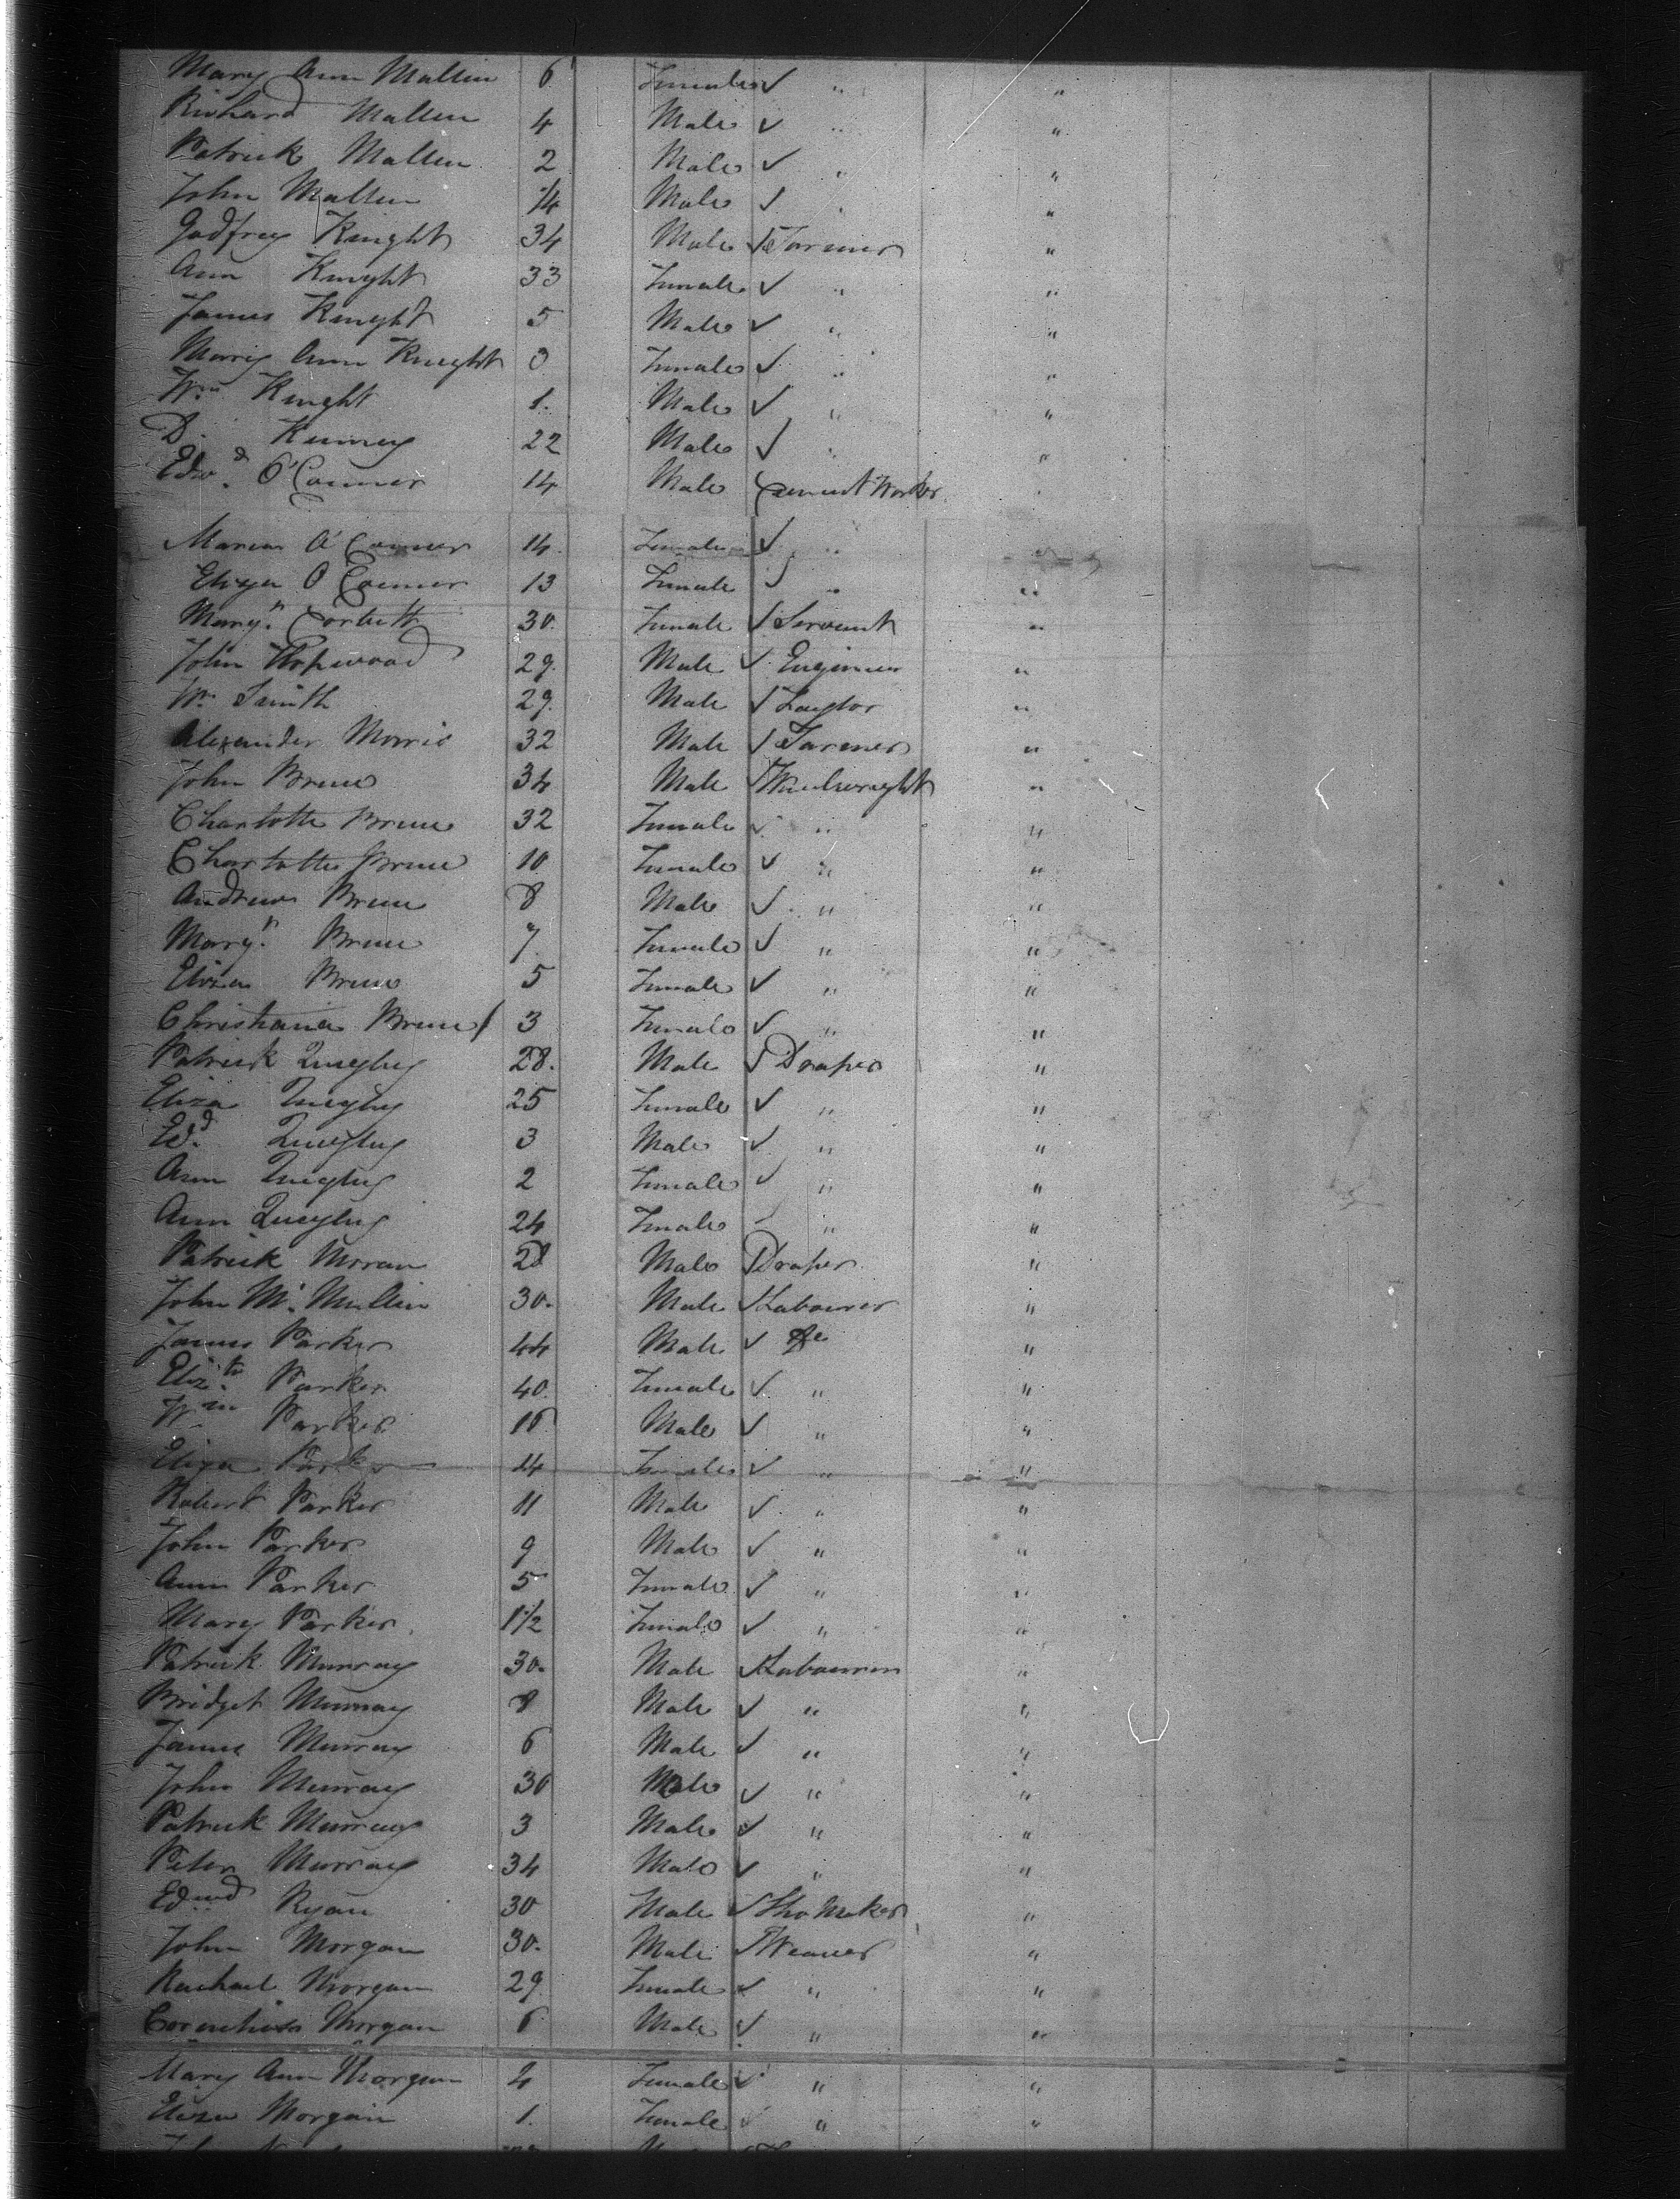 Mary Ann Mallin 6 Female ✓ " "
Richard Mallin 4 Male ✓ " "
Patrick Mallin 2 Male ✓ " "
John Mallin 1/4 Male ✓ " "
Godfrey Knight 34 Male ✓ Farmer "
Ann Knight 33 Female ✓ " "
James Knight 5 Male ✓ " "
Mary Ann Knight 3 Female ✓ " "
Wm Knight 1. Male ✓ " "
D. 22 Male ✓ " "
Edwd. O'Conner 14 Male Worker "
Maria O'Conner 14. Female ✓ " "
Eliza O'Conner 13 Female ✓ " "
Mary. Corbett 30. Female ✓ Servant "
John Hopwood 29. Male ✓ Engineer "
Wm Smith 29. Male ✓ Taylor "
Alexander Morris 32 Male ✓ Farmer "
John Bruce 34 Male ✓ Wheelwright "
Charlotte Bruce 32 Female ✓ " "
Charlotte Bruce 10 Female ✓ " "
Andrew Bruce 8 Male ✓ " "
Mary. Bruce 7. Female ✓ " "
Eliza Bruce 5 Female ✓ " "
Christiana Bruce 3 Female ✓ " "
Patrick Quigley 28. Male ✓ Draper "
Eliza Quigley 25 Female ✓ " "
Edd. Quigley 3 Male ✓ " "
Ann Quigley 2 Female ✓ " "
Ann Quigley 24 Female ✓ " "
Patrick Moran 28 Male Draper "
John Mc. Mullin 30. Male ✓ Labourer "
James Parker 44 Male ✓ "
Elizth. Parker 40. Female ✓ " "
Wm Parker 16 Male ✓ " "
Eliza Parker 14 Female ✓ " "
Robert Parker 11 Male ✓ " "
John Parker 9 Male ✓ " "
Ann Parker 5 Female ✓ " "
Mary Parker 1 1/2 Female ✓ " "
Patrick Murray 30. Male ✓ Labourer "
Bridget Murray 8 Male ✓ " "
James Murray 6 Male ✓ " "
John Murray 30 Male ✓ " "
Patrick Murray 3 Male ✓ " "
Peter Murray 34 Male ✓ " "
Edmd Ryan 30 Male ✓ Sho Maker "
John Morgan 30. Male ✓ Weaver "
Rachael Morgan 29 Female ✓ " "
Cornelius Morgan 6 Male ✓ " "
Mary Ann Morgan 4 Female ✓ " "
Eliza Morgan 1. Female ✓ " "